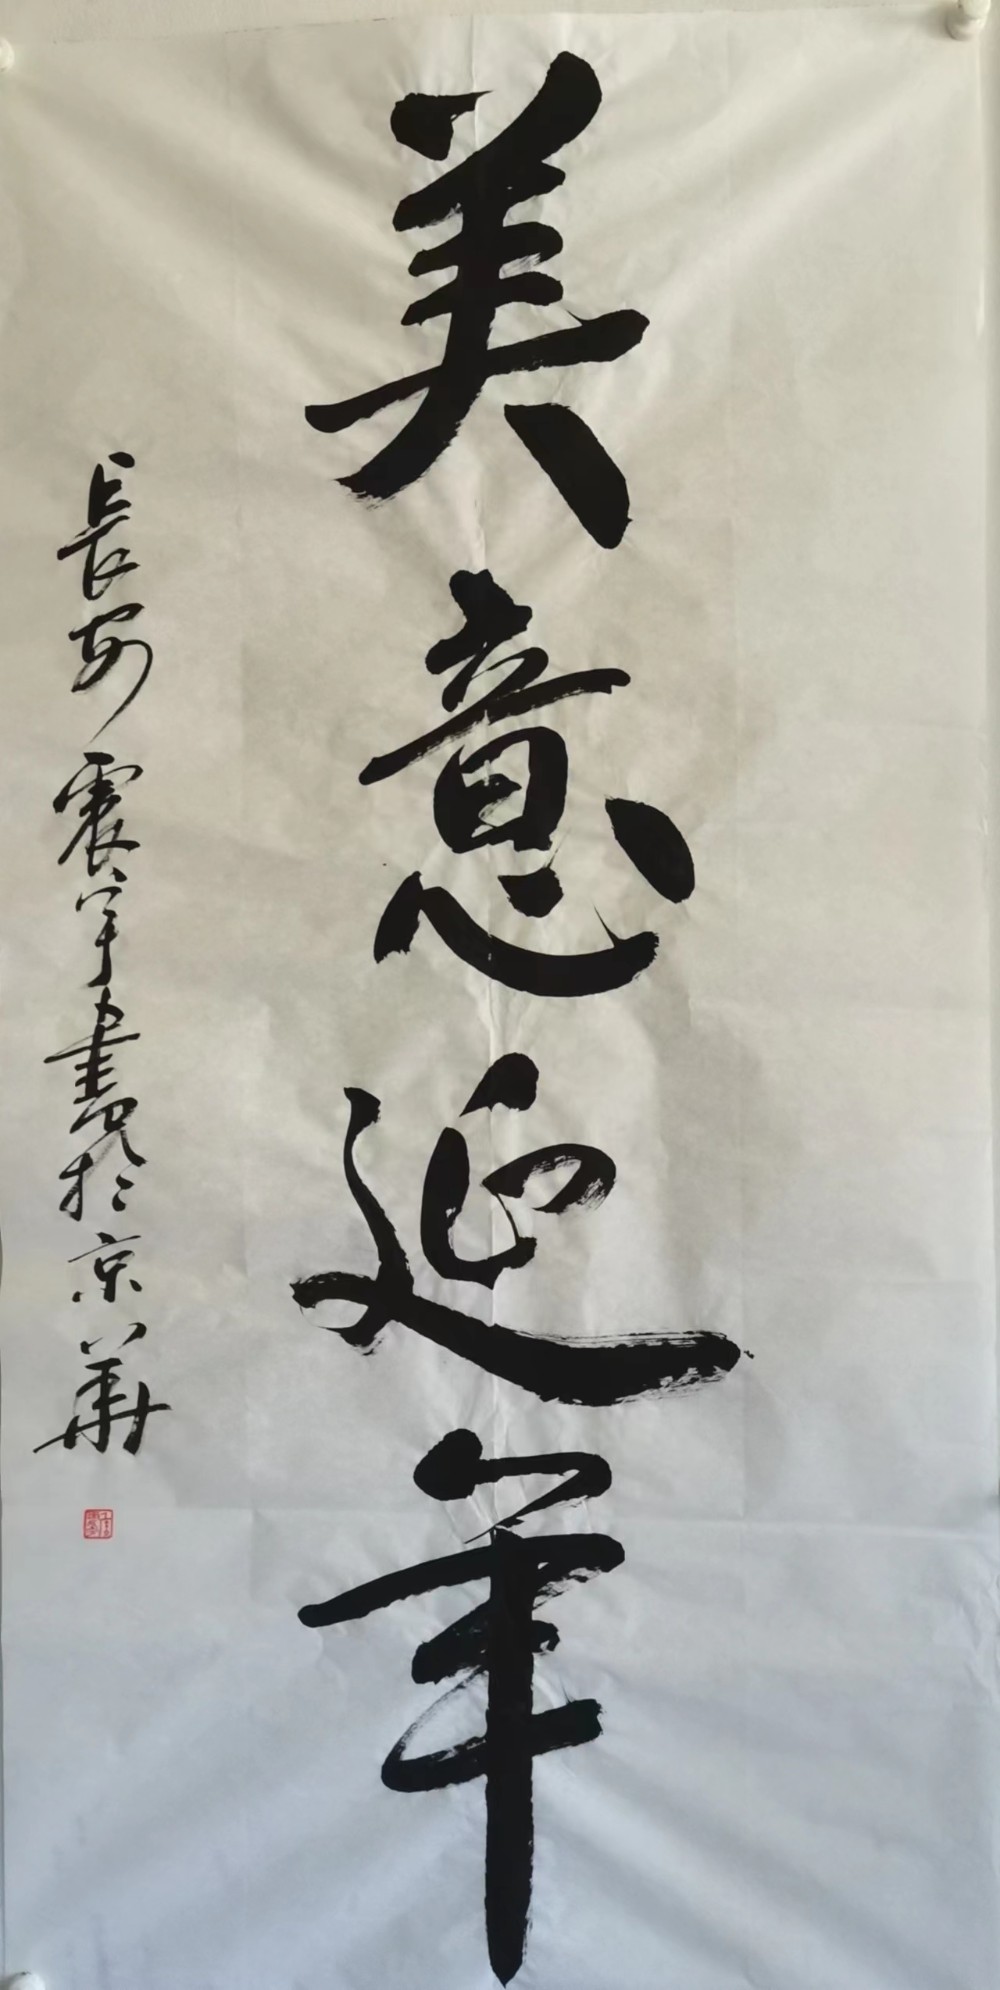 美意延年
長安震宇書於京華